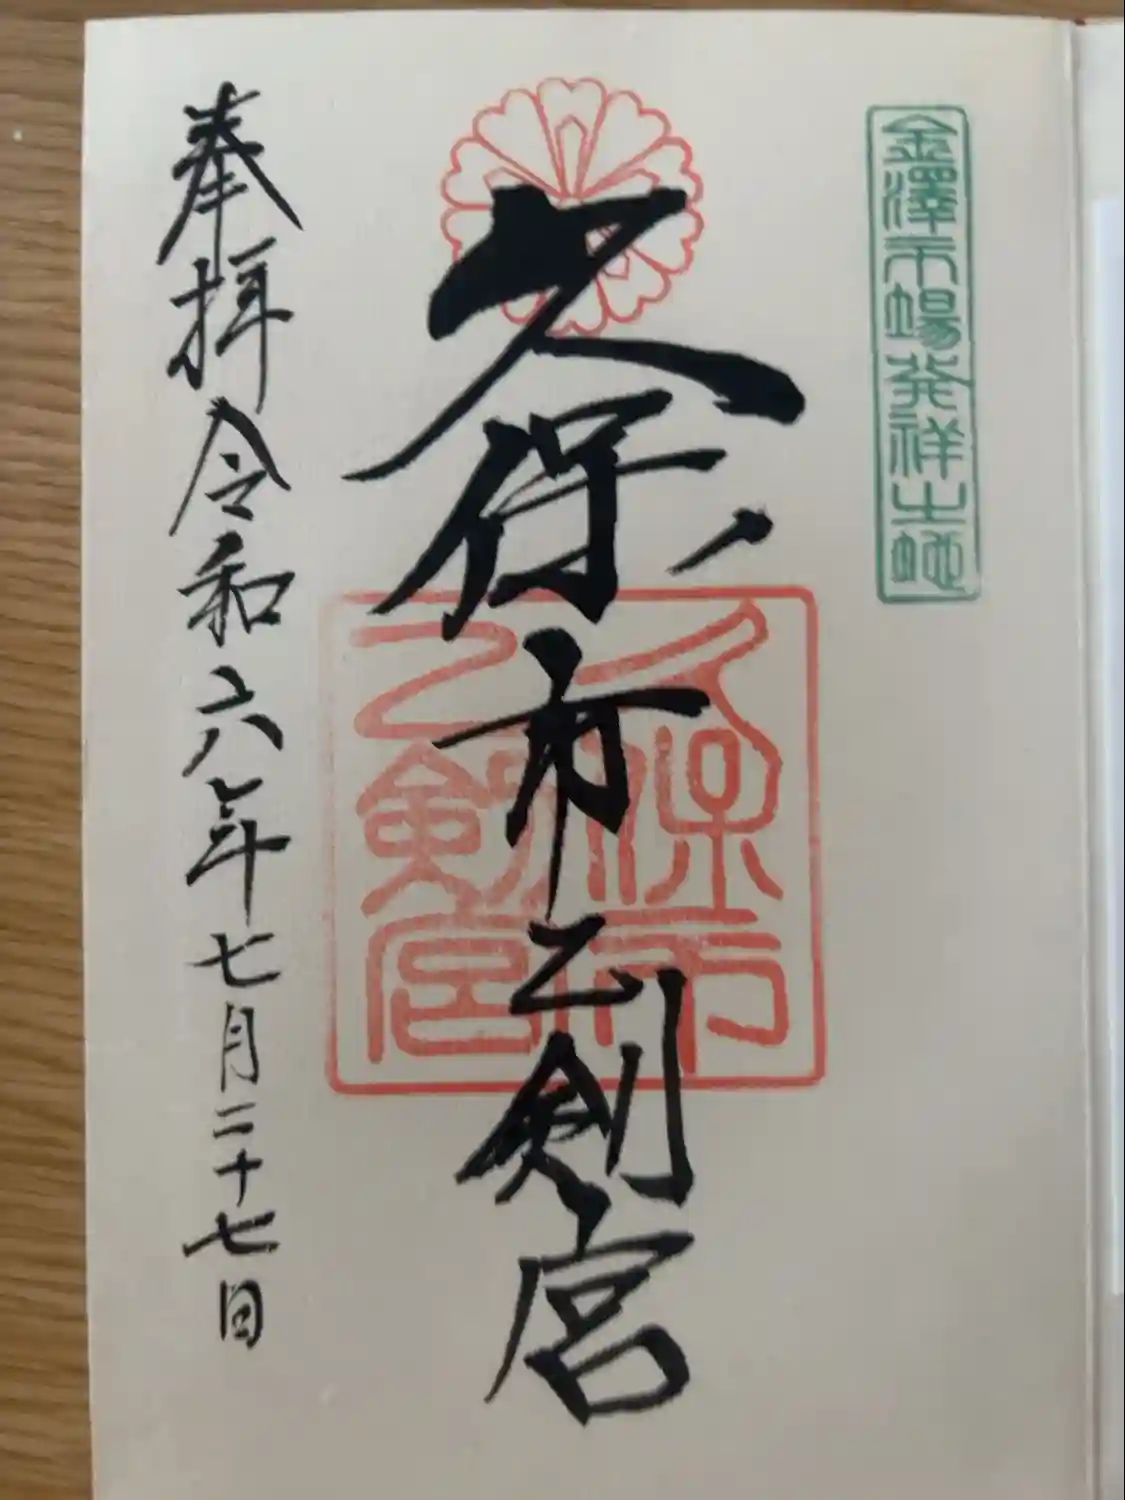 金澤市場発祥之地
久保市乙剣宮
久保市
乙剣宮
奉拝令和六年七月二十七日